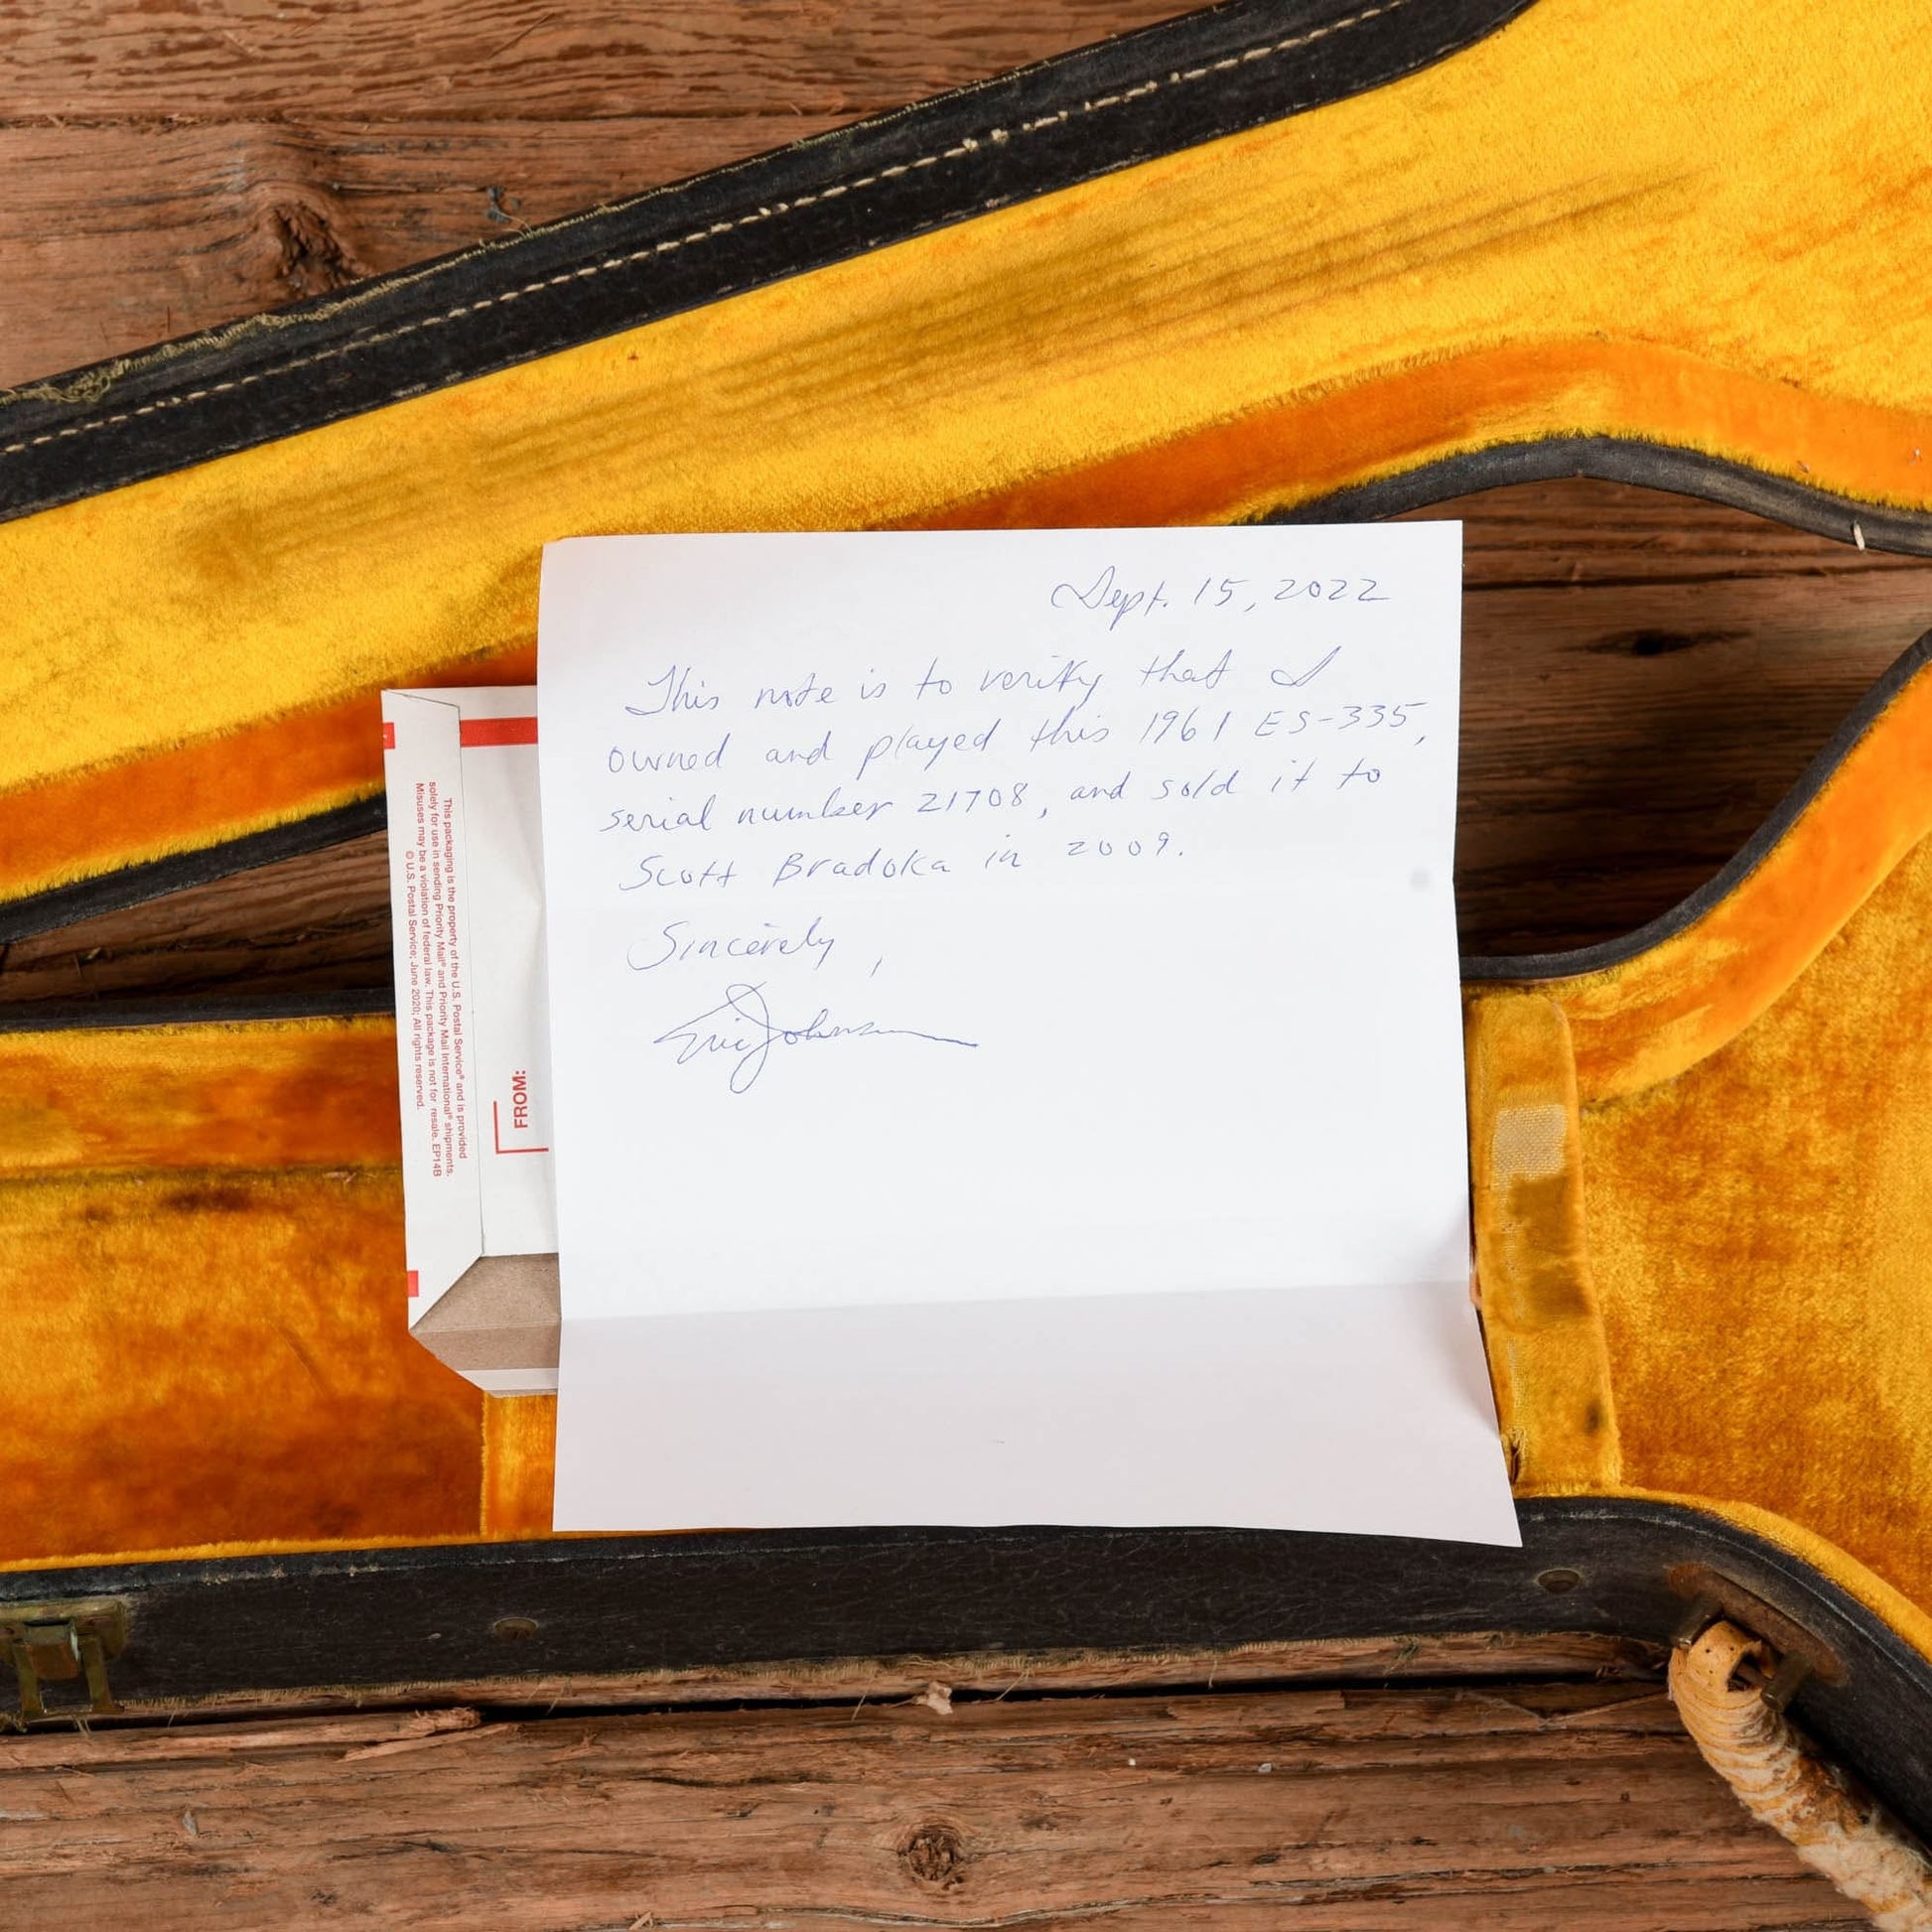 Sept. 15, 2022
This note is to verify that I
owned and played this 1961 ES-335,
serial number 21708, and sold it to
Scott Bradoka in 2009.
Sincerely,
Eric Johnson
This packaging is the property of the U.S. Postal Service® and is provided
solely for use in sending Priority Mail® and Priority Mail International® shipments.
Misuses may be a violation of federal law. This package is not for resale. EP14B
© U.S. Postal Service; June 2020; All rights reserved.
FROM: